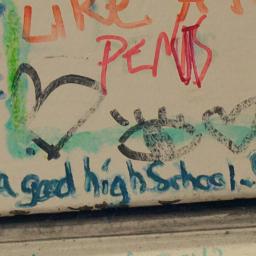 LIKE A
PENIS
a good high School..